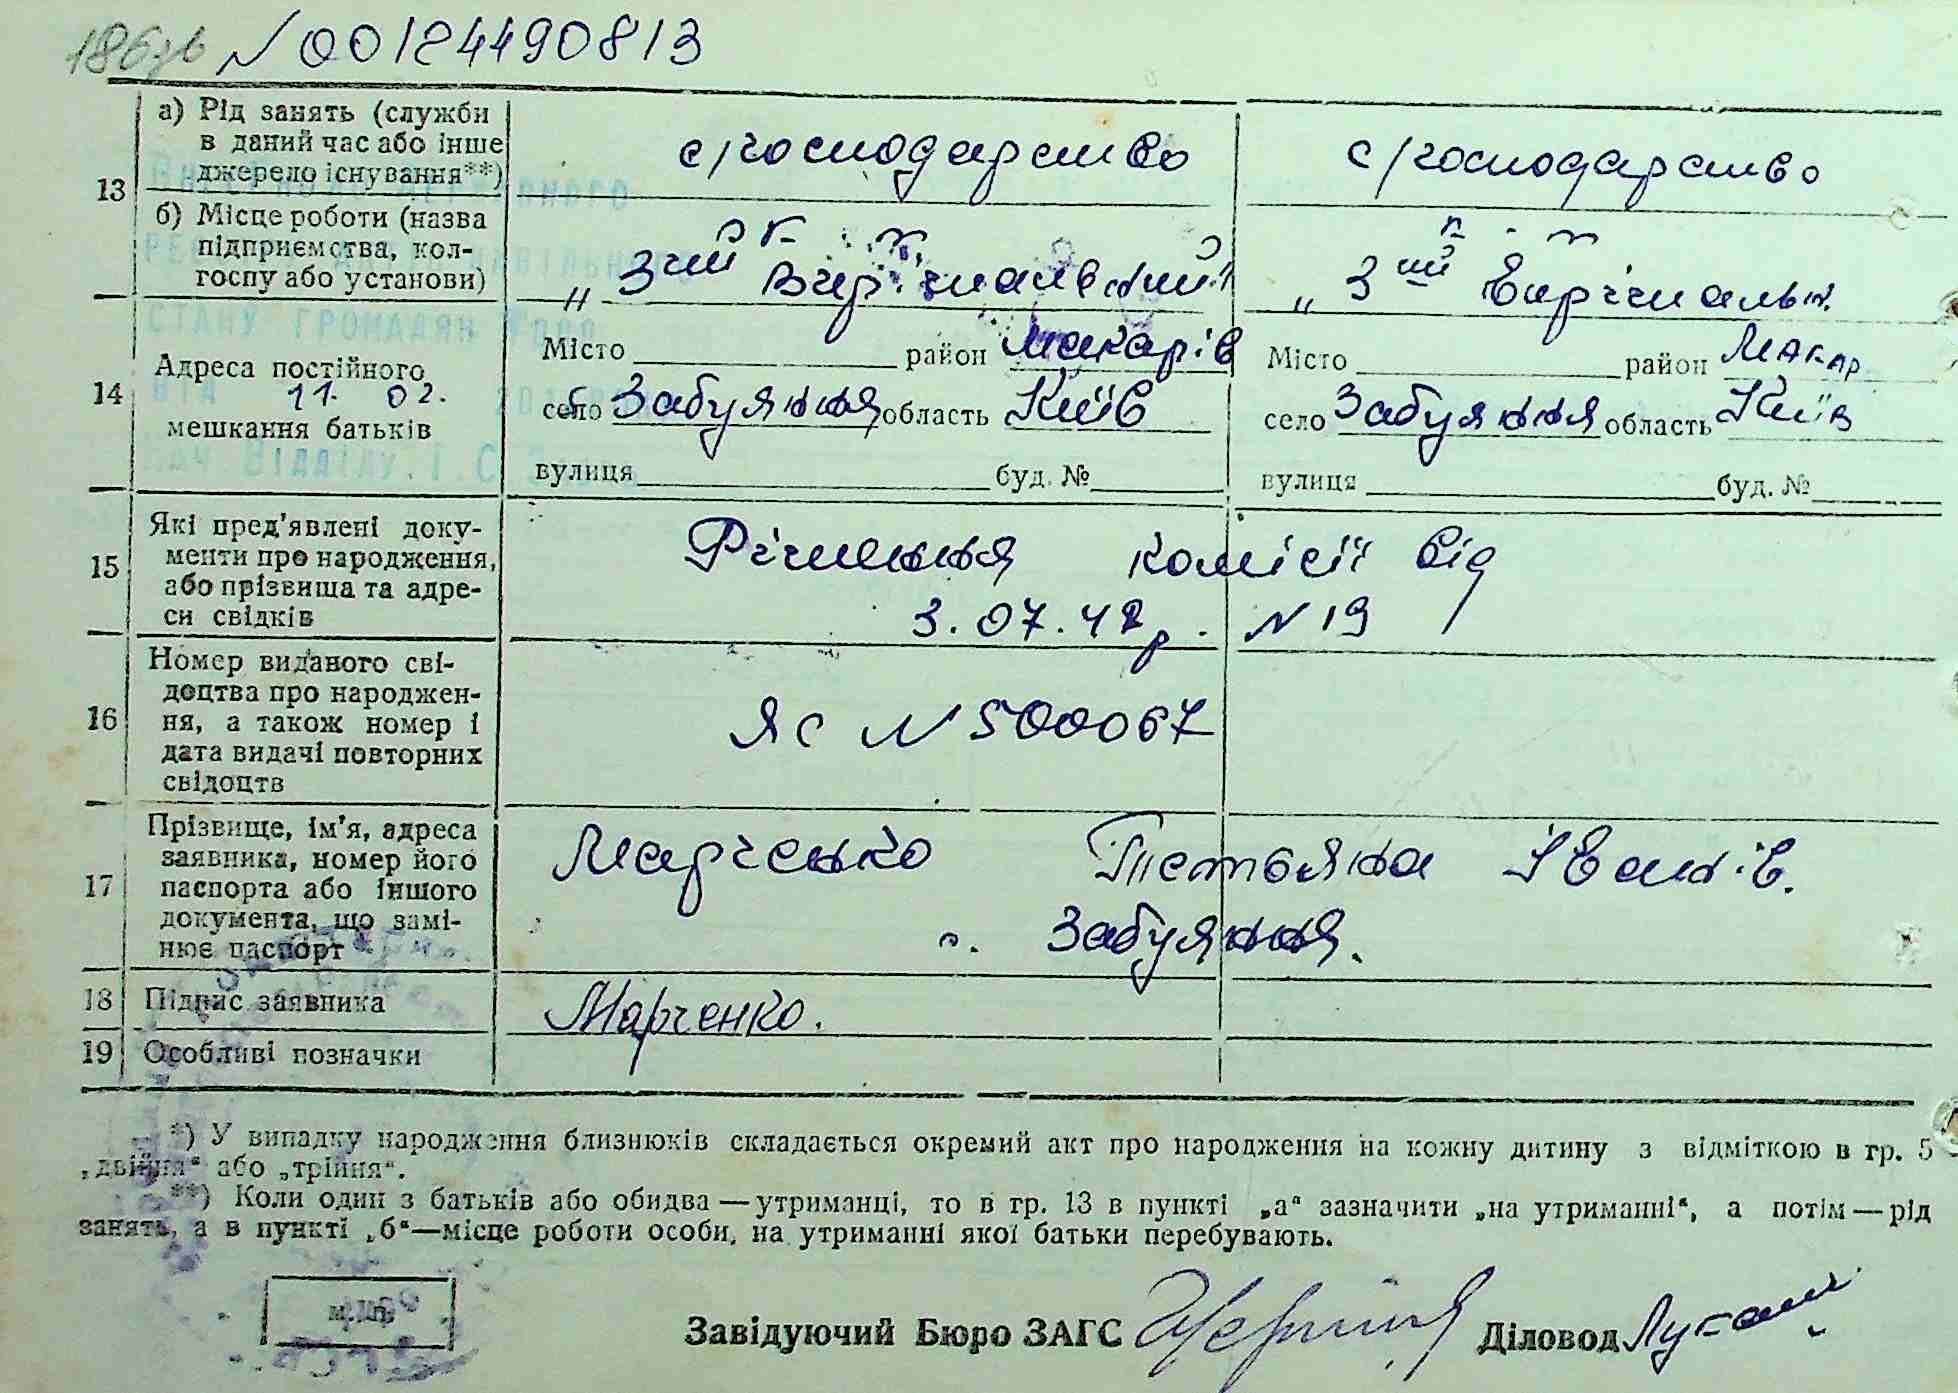 186зв N 00124490813
13 а) Рід занять (служби в даний час або інше джерело існування**)
с/господарство с/господарство
б) Місце роботи (назва підприємства, колгоспу або установи)
к-г к-г
„ 3ий Вирішальний" „ 3ий Вирішальн.
14 Адреса постійного мешкання батьків
11. 02.
Місто район Макарів Місто район Макар
село Забуяння область Київ село Забуяння область Київ
вулиця буд. № вулиця буд. №
15 Які пред'явлені документи про народження, або прізвища та адреси свідків
Рішення комісії від
3.07.47р. N 19
16 Номер виданого свідоцтва про народження, а також номер і дата видачі повторних свідоцтв
ЯС N 500067
17 Прізвище, ім'я, адреса заявника, номер його паспорта або іншого документа, що замінює паспорт
Марченко Тетьяна Іванів.
с. Забуяння.
18 Підпис заявника
Марченко.
19 Особливі позначки
*) У випадку народження близнюків складається окремий акт про народження на кожну дитину з відміткою в гр. 5
„двійня" або „трійня".
**) Коли один з батьків або обидва — утриманці, то в гр. 13 в пункті „а" зазначити „на утриманні", а потім — рід
занять, а в пункті „б"—місце роботи особи, на утриманні якої батьки перебувають.
Завідуючий Бюро ЗАГС Діловод